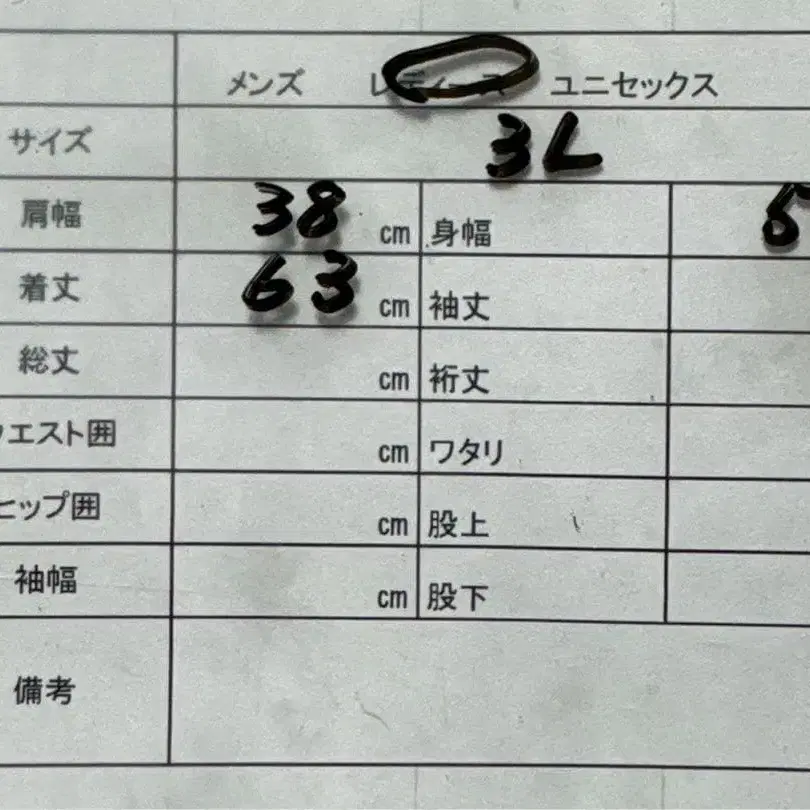 メンズ レディース ユニセックス
サイズ 3L
肩幅 38 cm 身幅
着丈 63 cm 袖丈
総丈 cm 裄丈
ウエスト囲 cm ワタリ
ヒップ囲 cm 股上
袖幅 cm 股下
備考